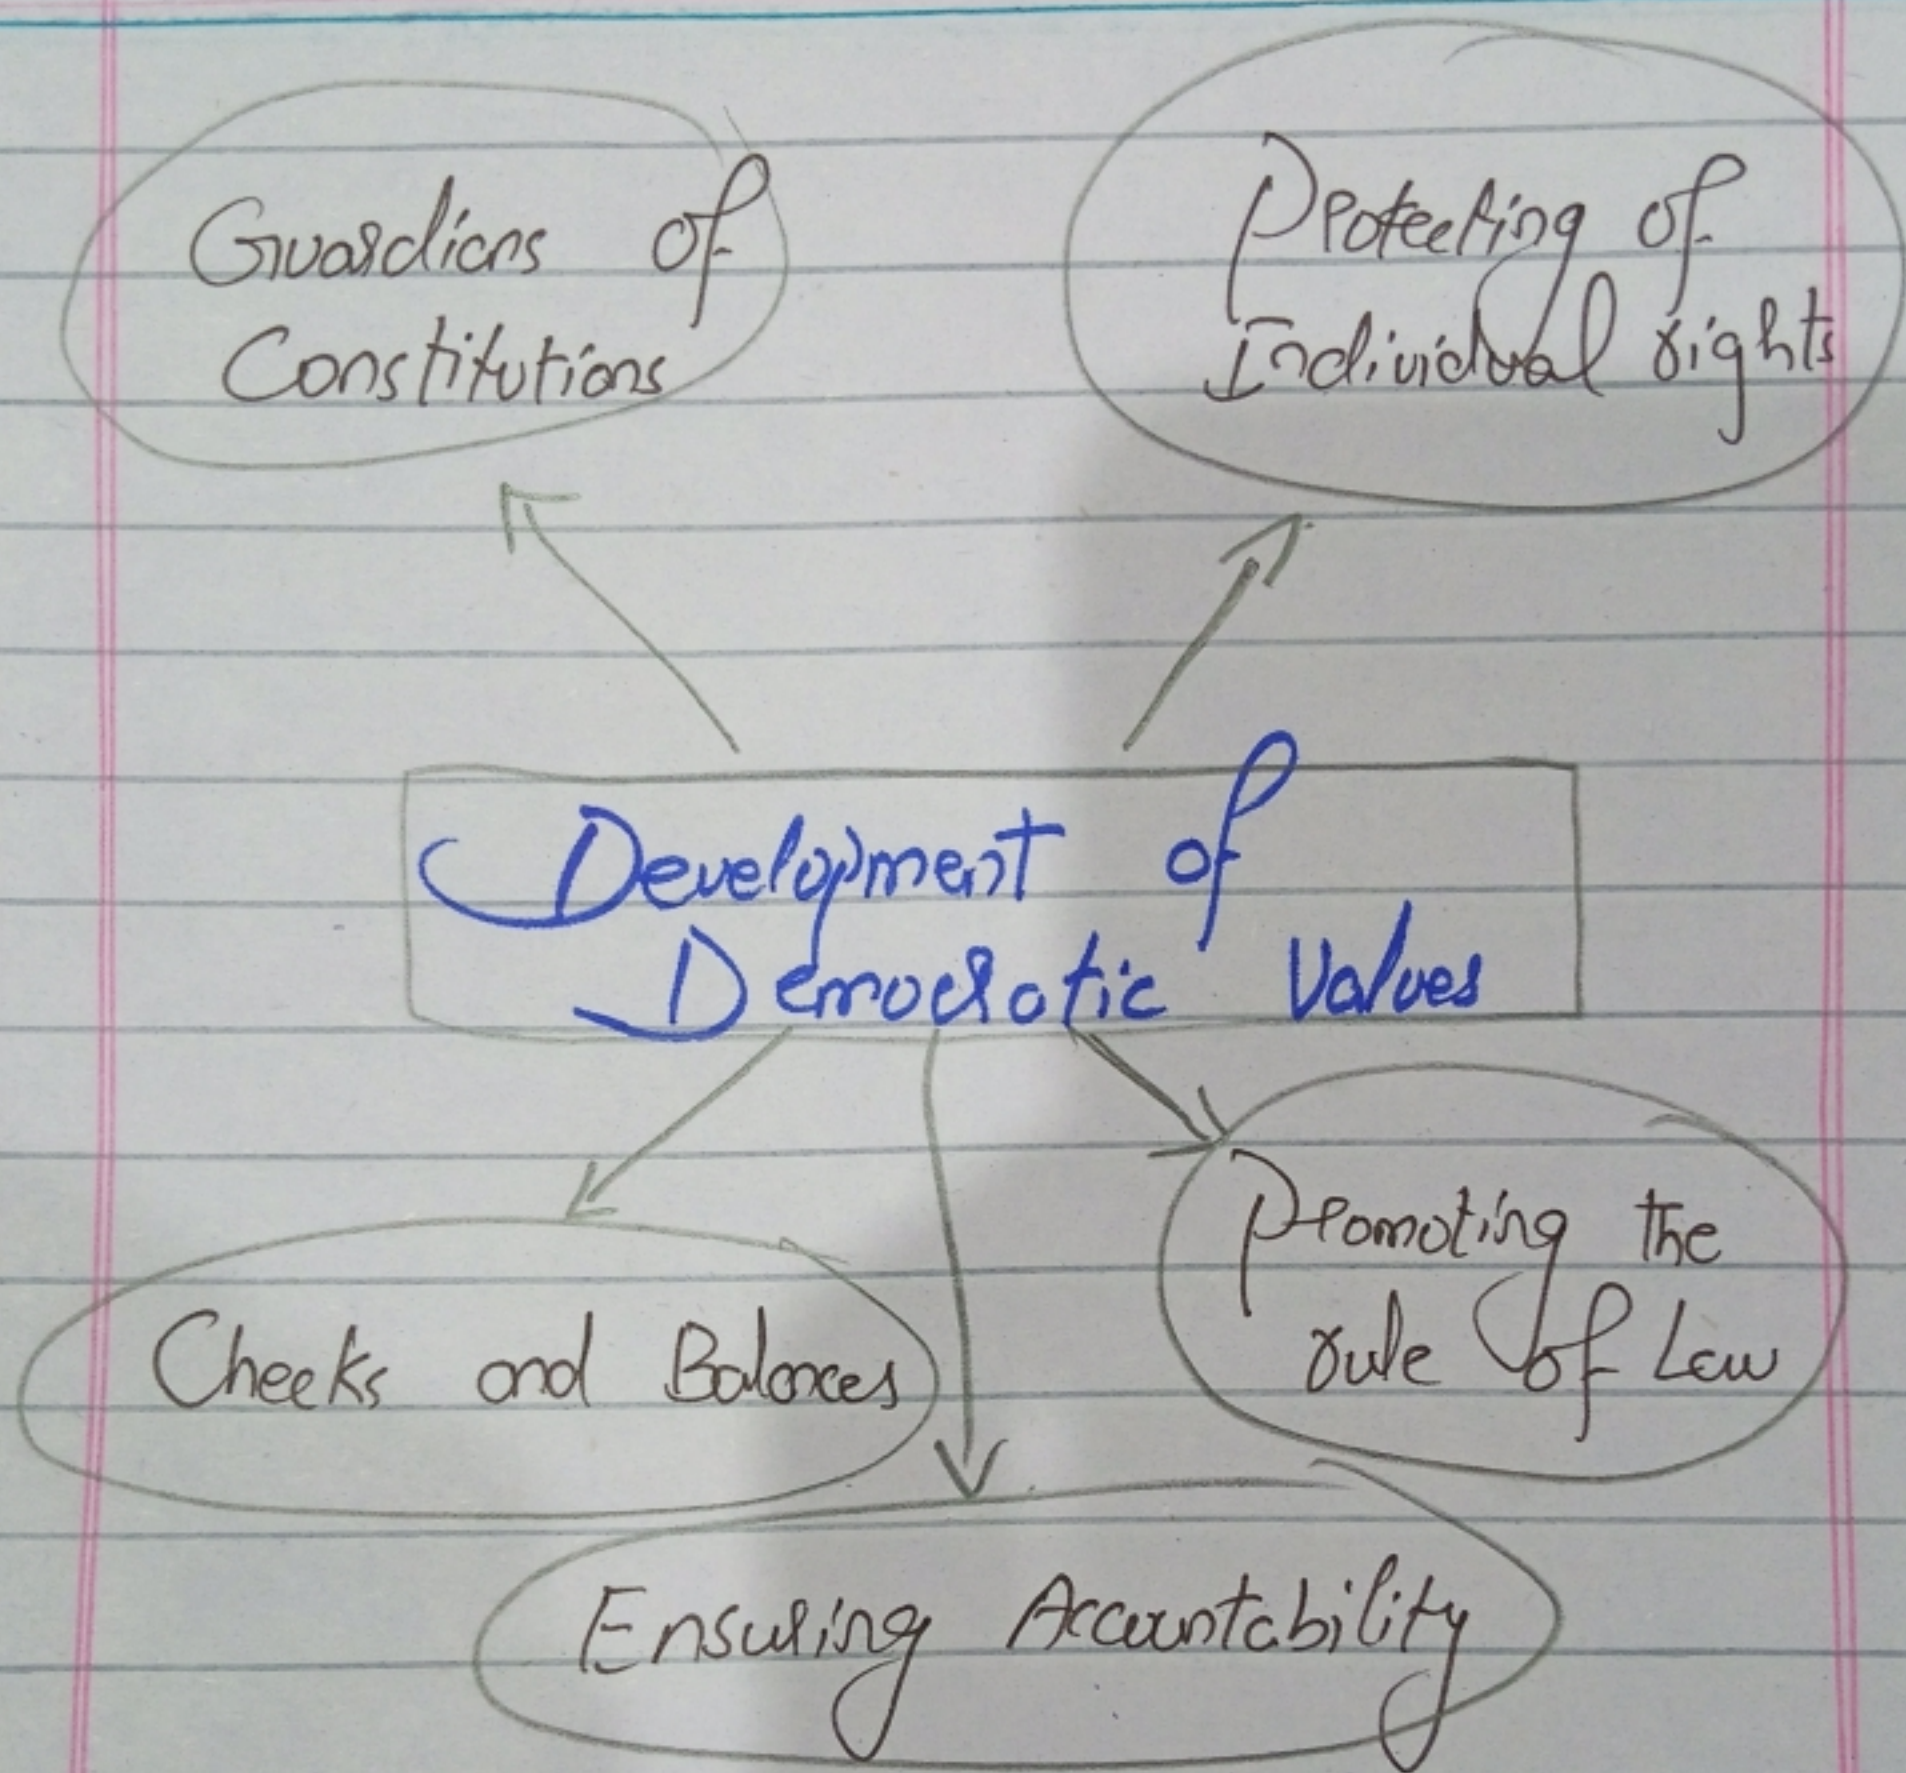 Guardians of
Constitutions
Protecting of
Individual rights
Development of
Democratic Values
Checks and Balances
Promoting the
rule of Law
Ensuring Accountability